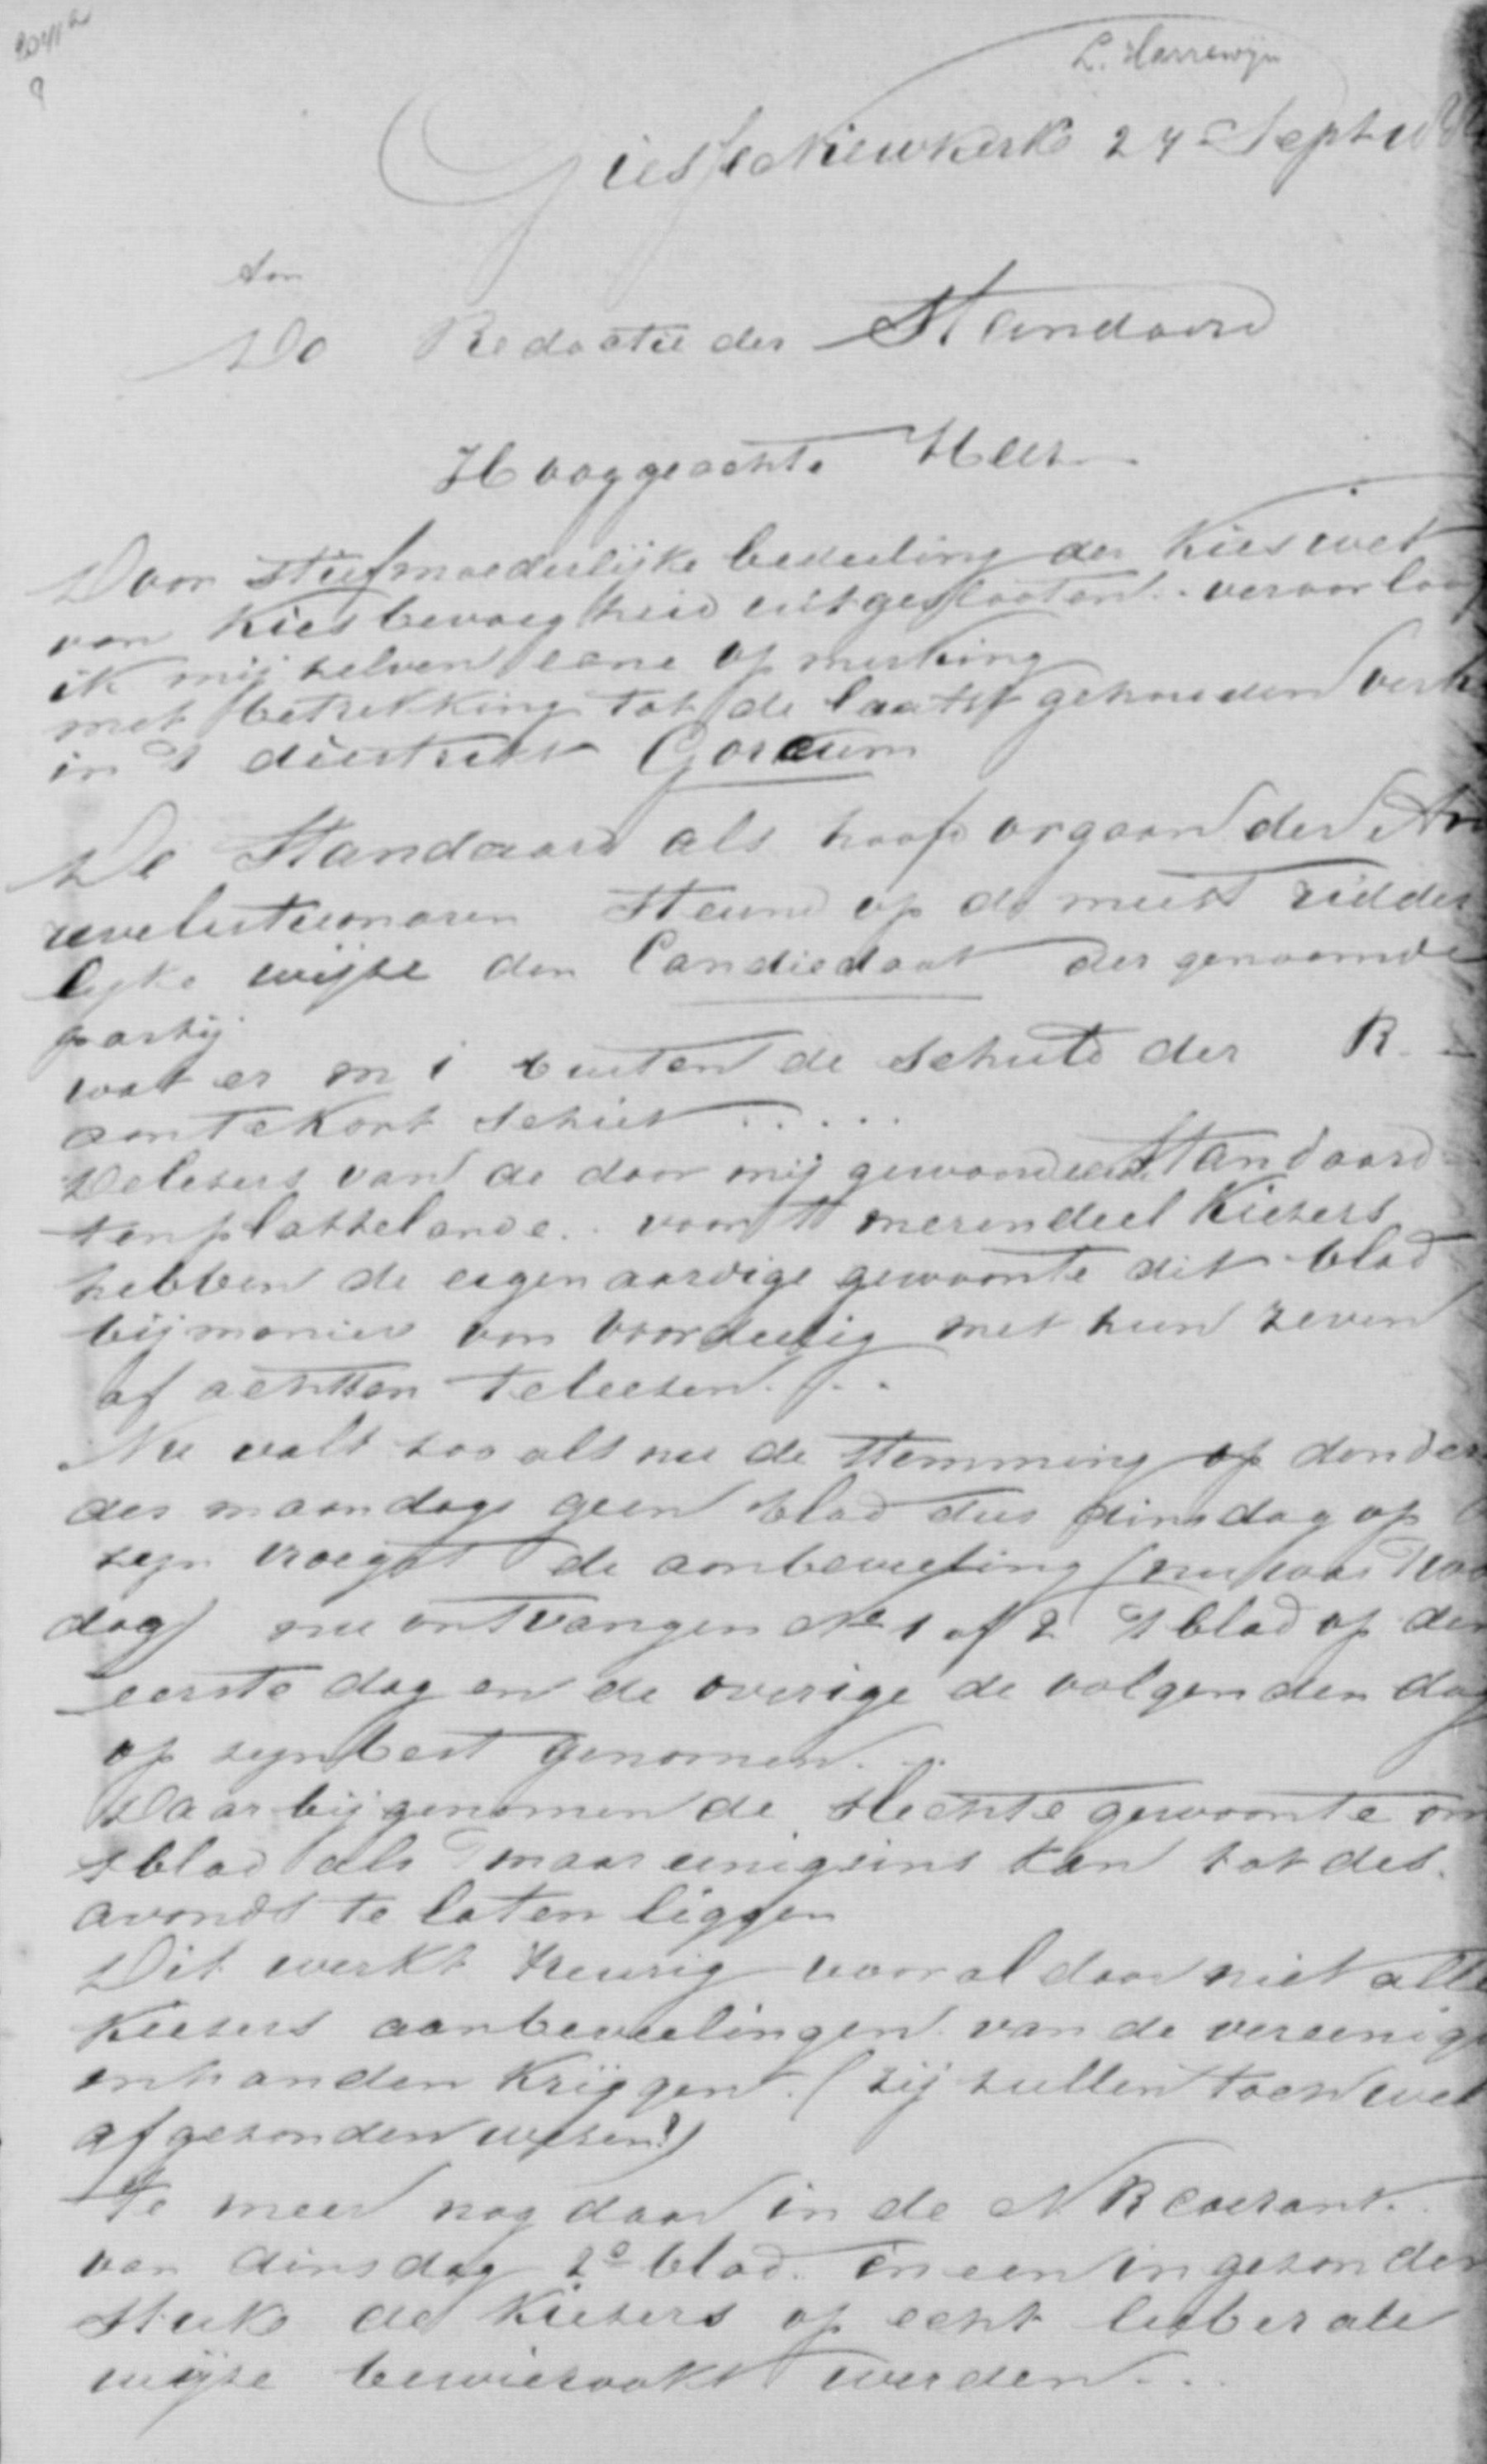 L. Harrewijn
Giesse Niewkerk 24 Sept
Aan
De Redactie der Standaard
Hooggeachte Heer
Door stiefmoederlijke bedeeling der Kieswet
van Kiesbevoegtheid uitgeslooten. veroorloof
ik mij zelven eene opmerking
met betrekking tot de laatst gehouden
in 't diestrikt Gorcum
De Standaard als hoofd orgaan der
revolutionaren steund op de meest ridder
lijke wijse den Candiedaat der genoemde
partij
wat er m i buiten de schuld der R.
aan te Kort schiet .....
De lesers van de door mij gewaardeerde Standaard
ten plattelande. voor 't merendeel Kiesers
hebben de eigenaardige gewoonte dit blad
bij manier van voordeelig met hun zeven
of achtten te leesen...
Nu valt zoo als nu de stemming op donder
des maandags geen blad dus dinsdag op
zijn vroegst de aanbeveeling (nu was
dag) nu ontvangen No 1 of 2 't blad op den
eerste dag en de overige de volgenden dag
op zijn best genomen...
Daar bij genomen de slechte gewoonte om
t blad als 't maar eenigsins kan tot des
avonds te laten liggen
Dit werkt treurig vooral daar niet alle
Kiesers aanbeveelingen van de vereenig
in handen krijgen. (zij zullen toch wel
afgesonden wesen!)
te meer nog daar in de N R Courant
van dinsdag 2e blad in een ingesonden
stuk de Kiesers op echt lieberale
wijse bewierookt werden...